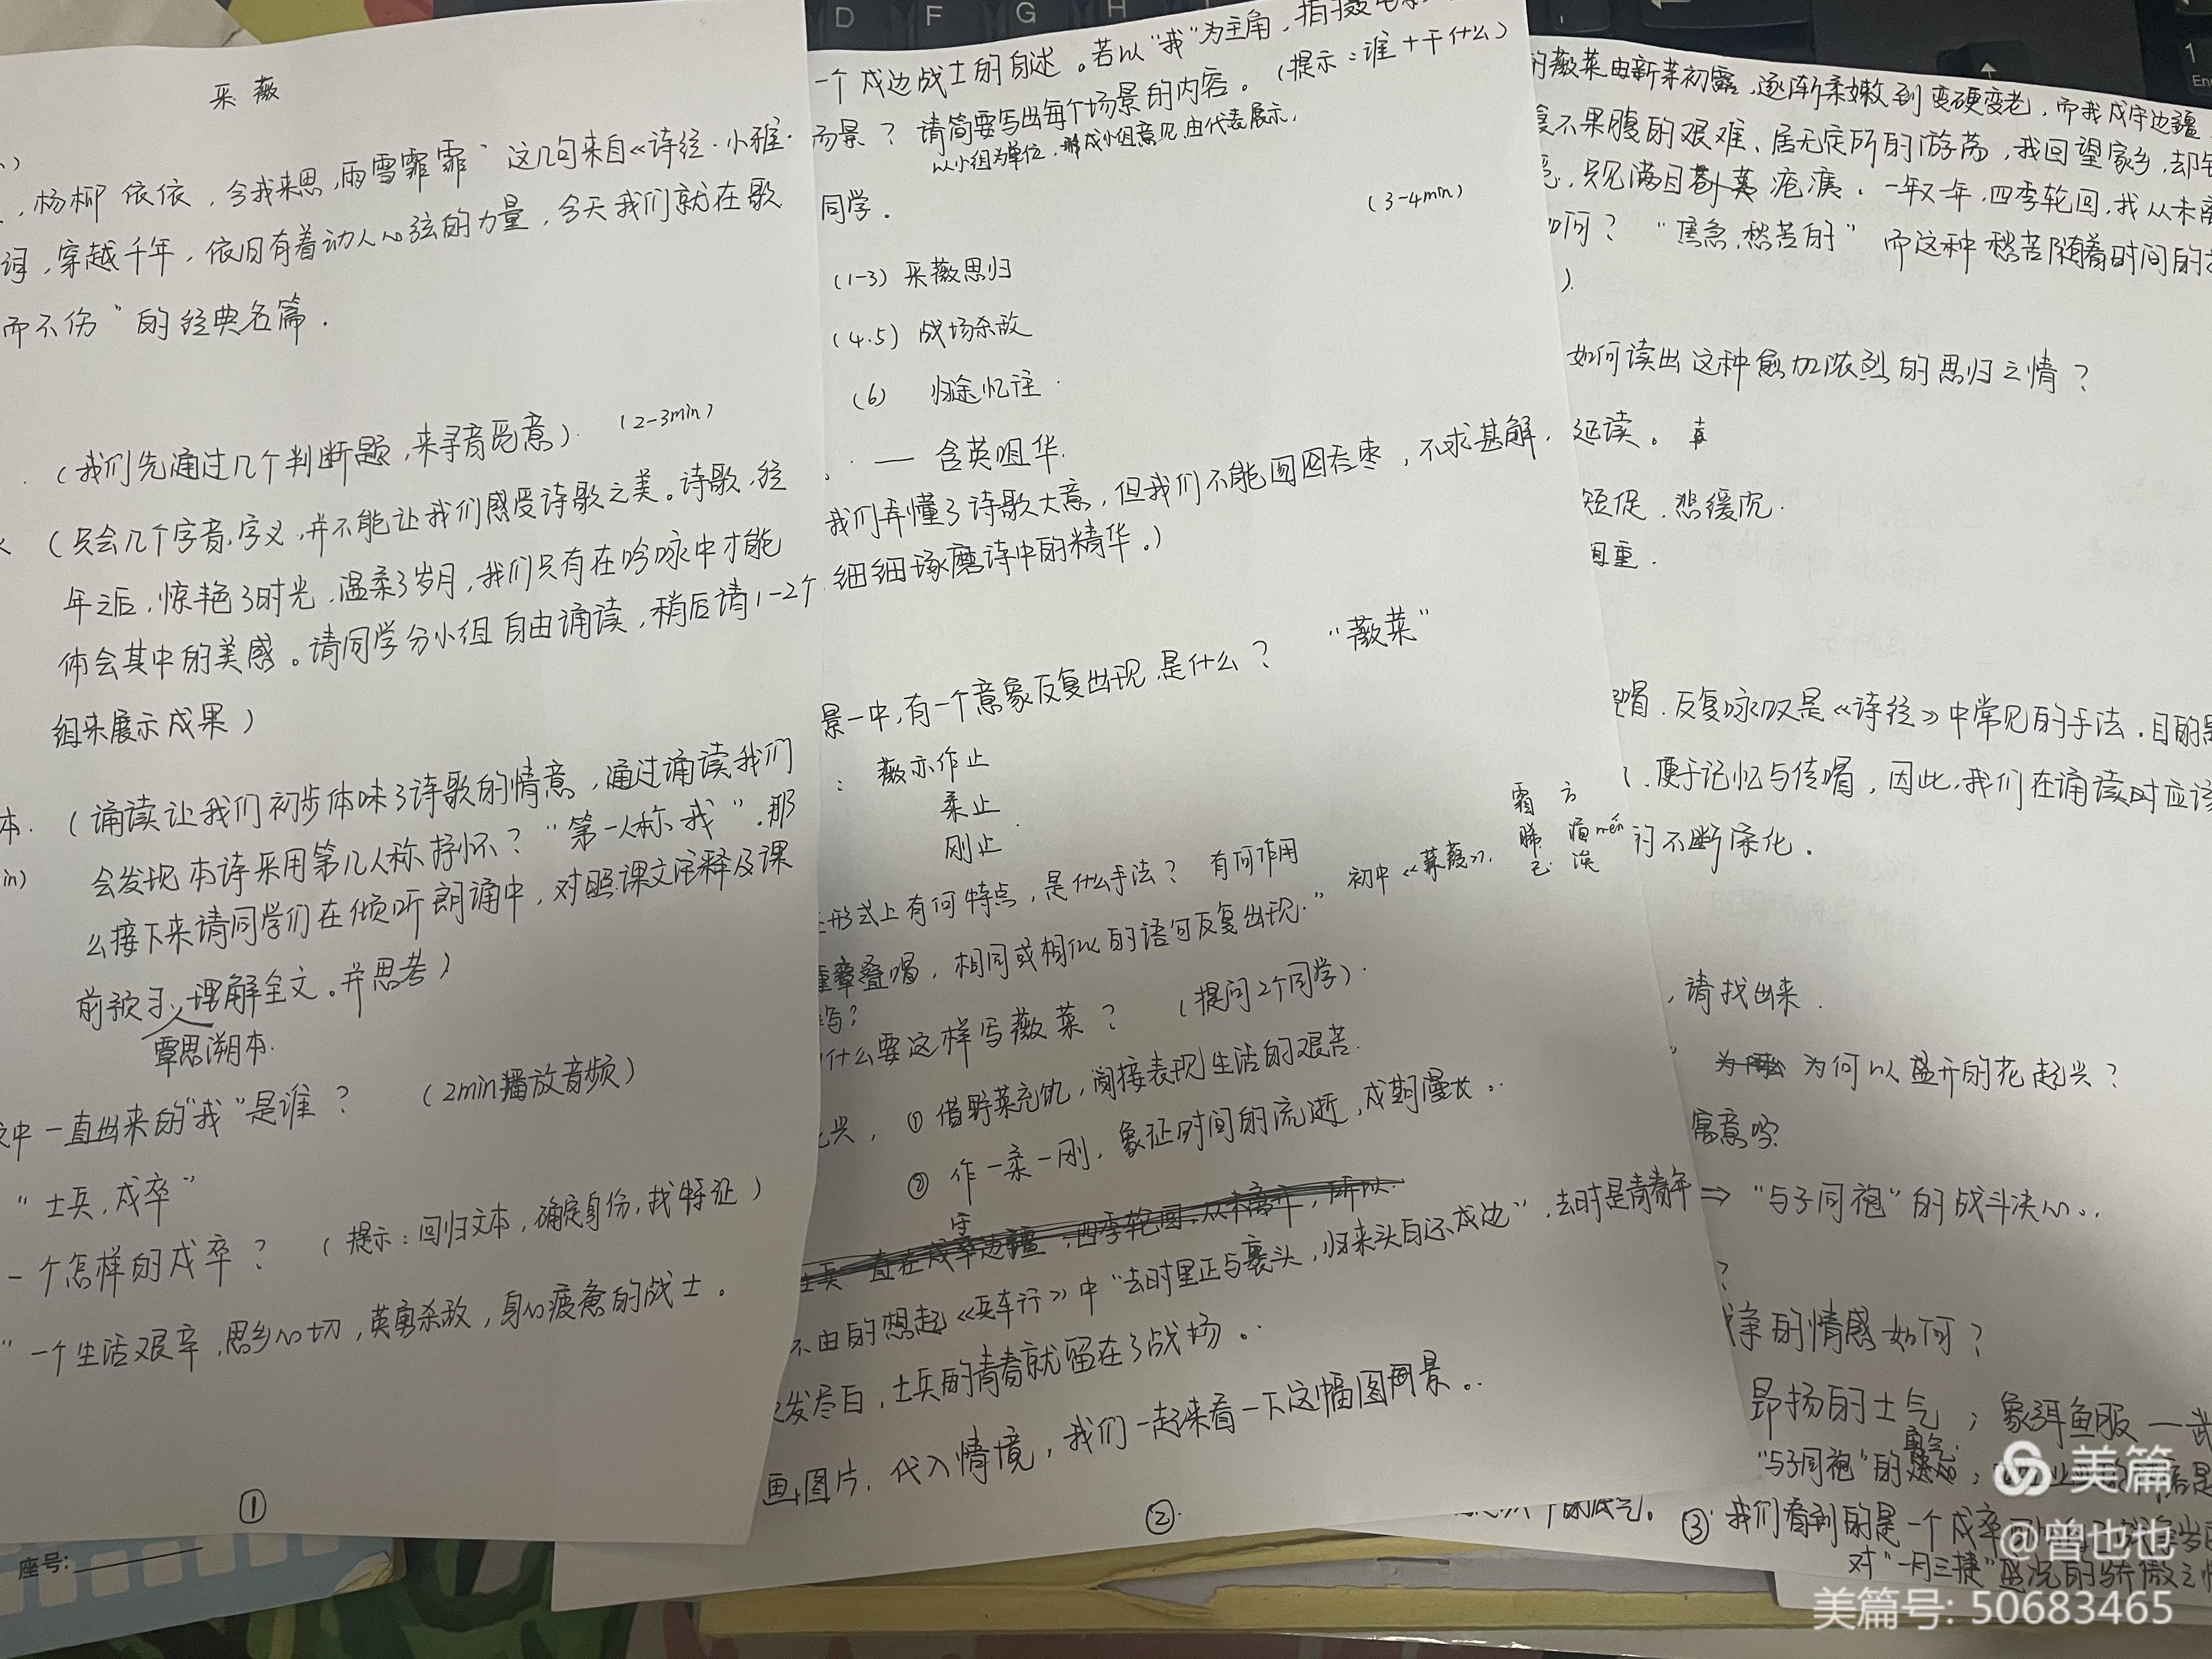 采薇
，杨柳依依，今我来思，雨雪霏霏" 这几句来自《诗经·小雅·
词，穿越千年，依旧有着动人心弦的力量，今天我们就在歌
而不伤"的经典名篇．
(我们先通过几个判断题，来寻音觅意)． (2-3min)
(只会几个字音、字义，并不能让我们感受诗歌之美。诗歌，经
年之后，惊艳了时光，温柔了岁月，我们只有在吟咏中才能
体会其中的美感。请同学分小组自由诵读，稍后请1-2个
组来展示成果)
本． (诵读让我们初步体味了诗歌的情意，通过诵读我们
in) 会发现本诗采用第几人称抒怀？"第一人称·我"．那
么接下来请同学们在倾听朗诵中，对照课文注释及课
前预习，理解全文。并思考)
覃思溯本．
文中一直出来的"我"是谁？ (2min播放音频)
"士兵，戍卒"
一个怎样的戍卒？ (提示：回归文本，确定身份，找特征)
"一个生活艰辛，思乡心切，英勇杀敌，身心疲惫的战士。
①
座号:
D F G H
一个戍边战士的自述。若以"我"为主角，拍摄
场景？请简要写出每个场景的内容。(提示：谁+干什么)
以小组为单位，形成小组意见，由代表展示，
同学． (3-4min)
(1-3) 采薇思归
(4.5) 战场杀敌
(6) 归途忆往．
— 含英咀华．
我们弄懂了诗歌大意，但我们不能囫囵吞枣，不求甚解，
细细琢磨诗中的精华。)
景一中，有一个意象反复出现，是什么？ "薇菜"
： 薇亦作止
柔止
刚止．
形式上有何特点，是什么手法？有何作用
重章叠唱，相同或相似的语句反复出现．" 初中《蒹葭》，
霜 方
晞 湄méi
已 涘
写？
什么要这样写薇菜？ (提问2个同学)．
兴，① 借野菜充饥，间接表现生活的艰苦．
② 作一柔一刚，象征时间的流逝，戍期漫长。
不由的想起《兵车行》中"去时里正与裹头，归来头白还戍边"．去时是青青年
发尽白，士兵的青春就留在了战场。
画，图片，代入情境，我们一起来看一下这幅图景。
②
的薇菜由新芽初露，逐渐柔嫩到变硬变老，而我戍守边疆
食不果腹的艰难、居无定所的游荡，我回望家乡，却
只见满目疮痍．一年又一年，四季轮回，我从未离
如何？"焦急，愁苦的" 而这种愁苦随着时间的
)．
如何读出这种愈加浓烈的思归之情？
延读。
短促．悲缓沉．
重．
唱．反复咏叹是《诗经》中常见的手法．目的是
便于记忆与传唱，因此，我们在诵读时应该
的不断深化．
，请找出来．
为何以盛开的花起兴？
寓意吗？
⇒ "与子同袍"的战斗决心。
？
战争的情感如何？
昂扬的士气；象弭鱼服一武
"与子同袍"的勇气；
③ 我们看到的是一个戍卒
对"一月三捷"盛况的骄傲之情
美篇
@曾也也
美篇号: 50683465